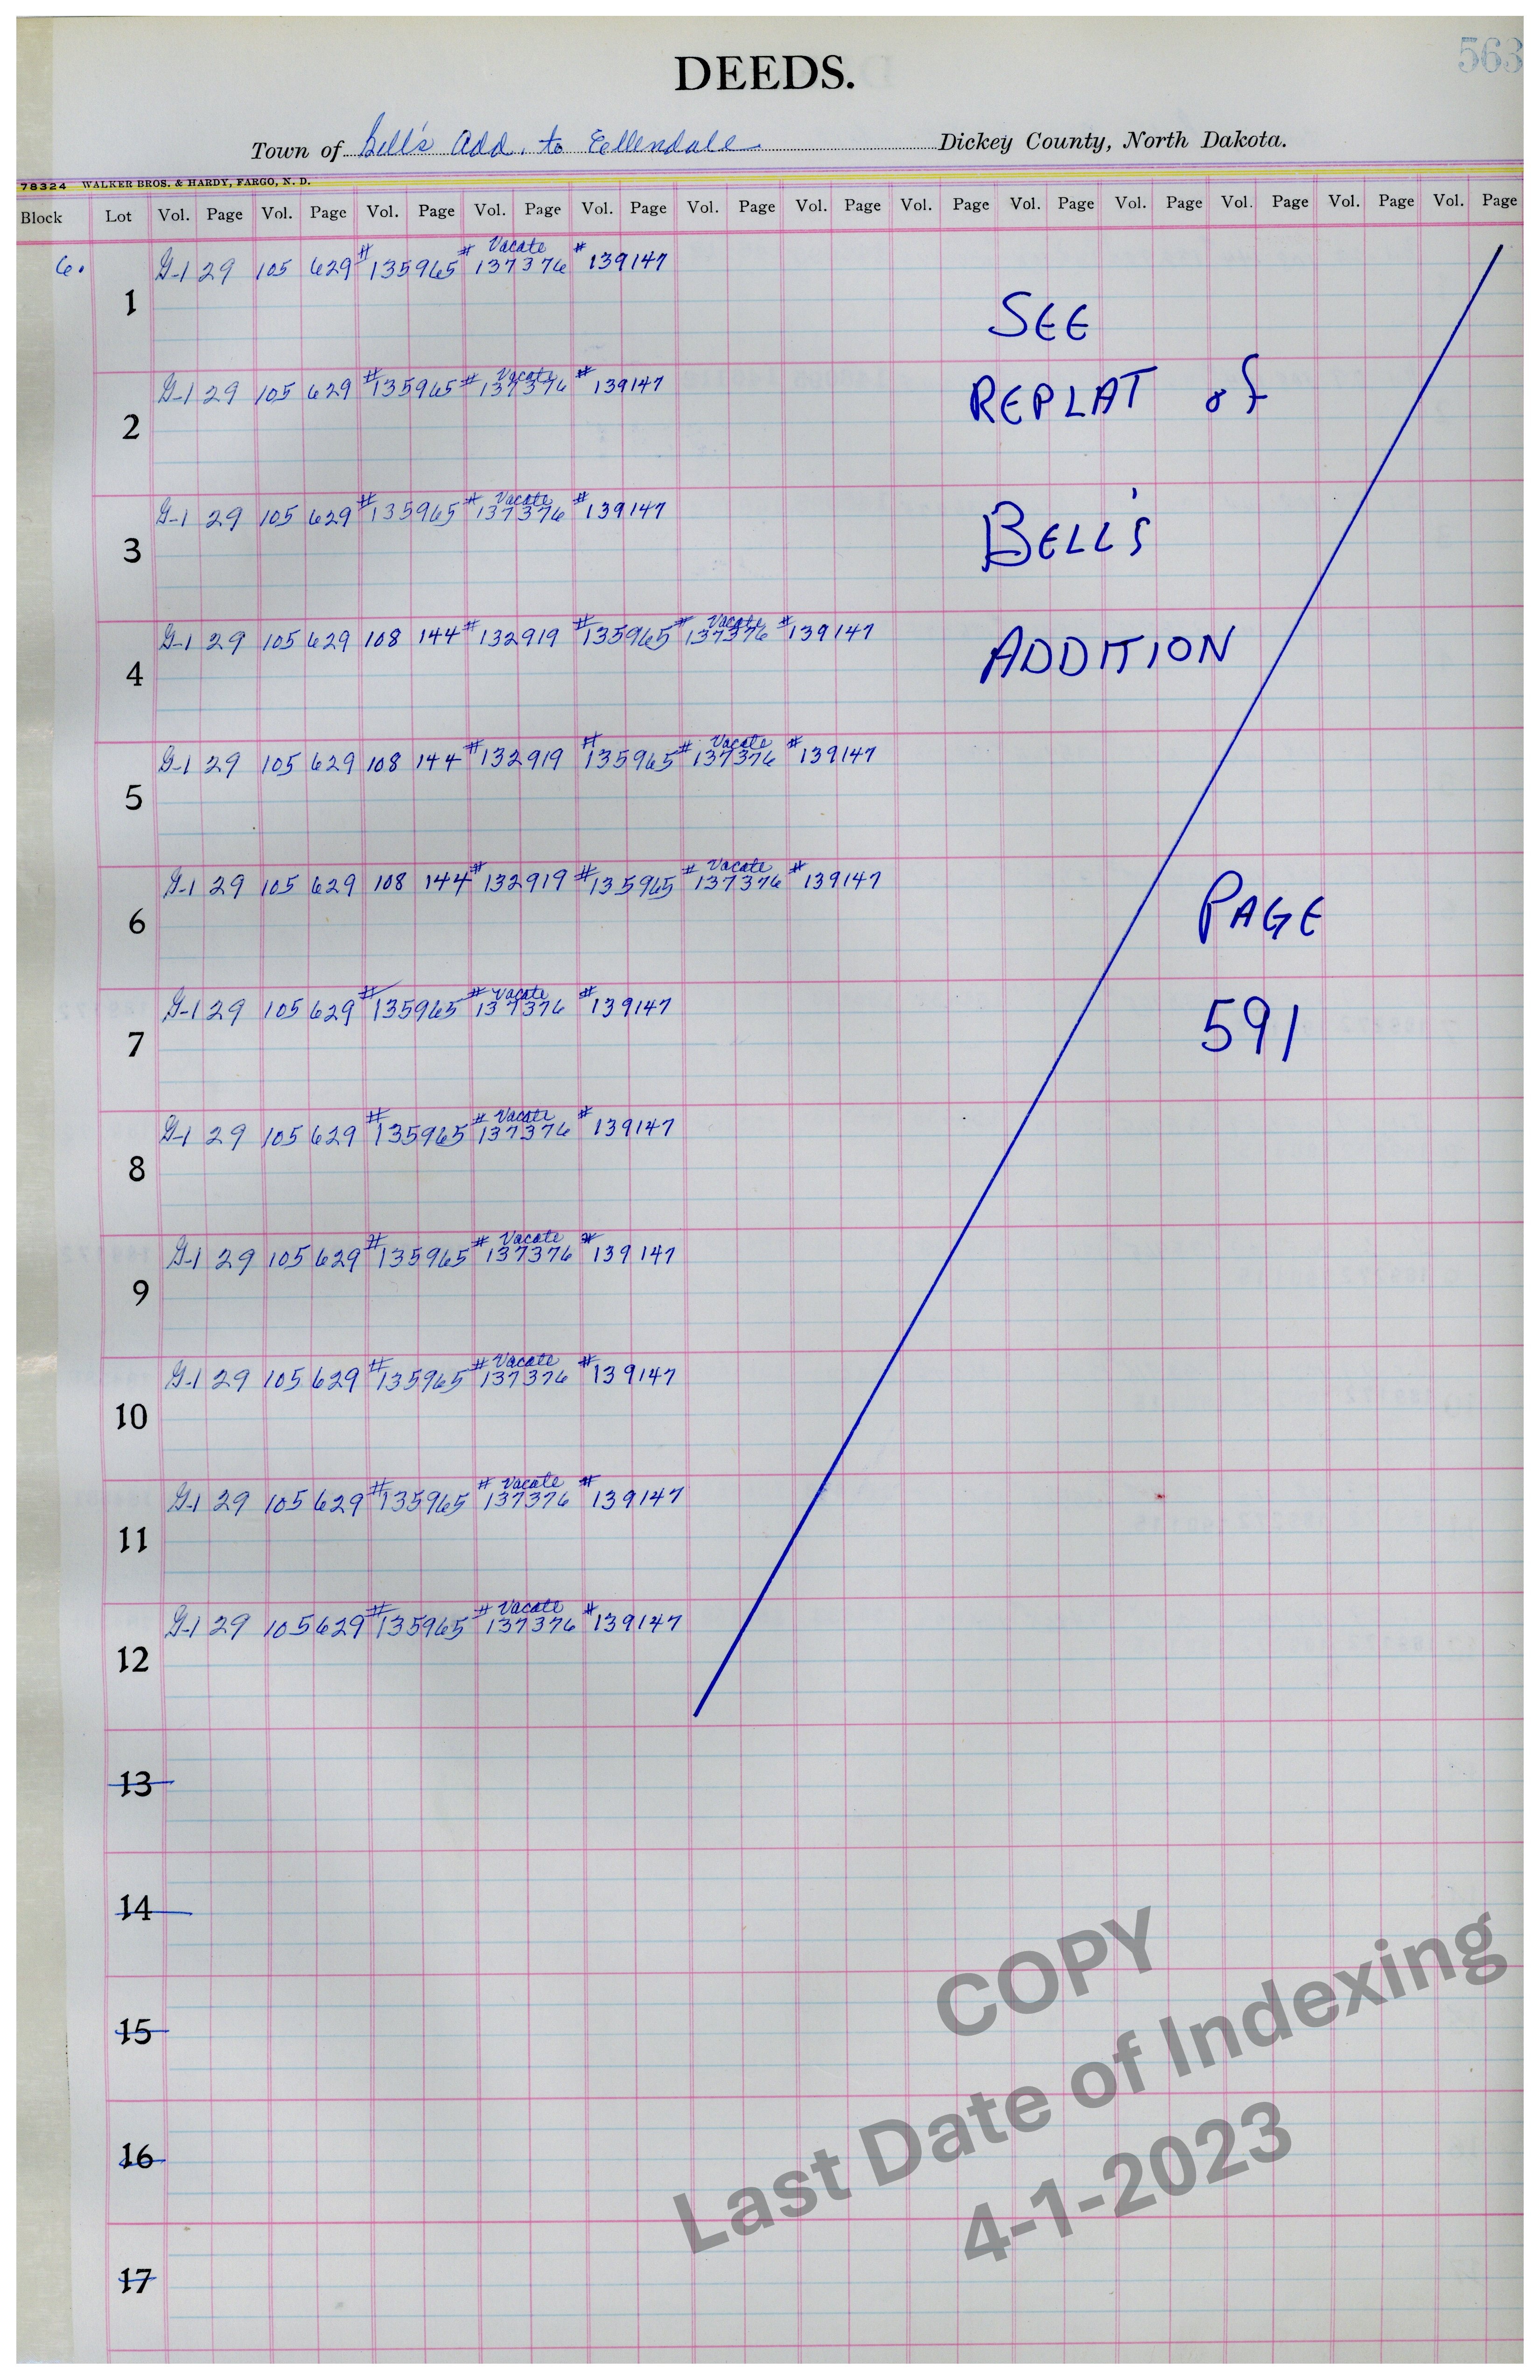 563
DEEDS.
Town of Bell's Add. to Ellendale Dickey County, North Dakota.
78324 WALKER BROS. & HARDY, FARGO, N. D.
Block Lot Vol. Page Vol. Page Vol. Page Vol. Page Vol. Page Vol. Page Vol. Page Vol. Page Vol. Page Vol. Page Vol. Page Vol. Page Vol. Page
6. 1 G-1 29 105 629 #135965 # Vacate 137376 #139147
SEE
2 G-1 29 105 629 #135965 # Vacate 137376 #139147
REPLAT of
3 G-1 29 105 629 #135965 # Vacate 137376 #139147
BELL'S
4 G-1 29 105 629 108 144 #132919 #135965 # Vacate 137376 #139147
ADDITION
5 G-1 29 105 629 108 144 #132919 #135965 # Vacate 137376 #139147
6 G-1 29 105 629 108 144 #132919 #135965 # Vacate 137376 #139147
PAGE
7 G-1 29 105 629 #135965 # Vacate 137376 #139147
591
8 G-1 29 105 629 #135965 # Vacate 137376 #139147
9 G-1 29 105 629 #135965 # Vacate 137376 #139147
10 G-1 29 105 629 #135965 # Vacate 137376 #139147
11 G-1 29 105 629 #135965 # Vacate 137376 #139147
12 G-1 29 105 629 #135965 # Vacate 137376 #139147
13
14
15
16
17
COPY
Last Date of Indexing
4-1-2023